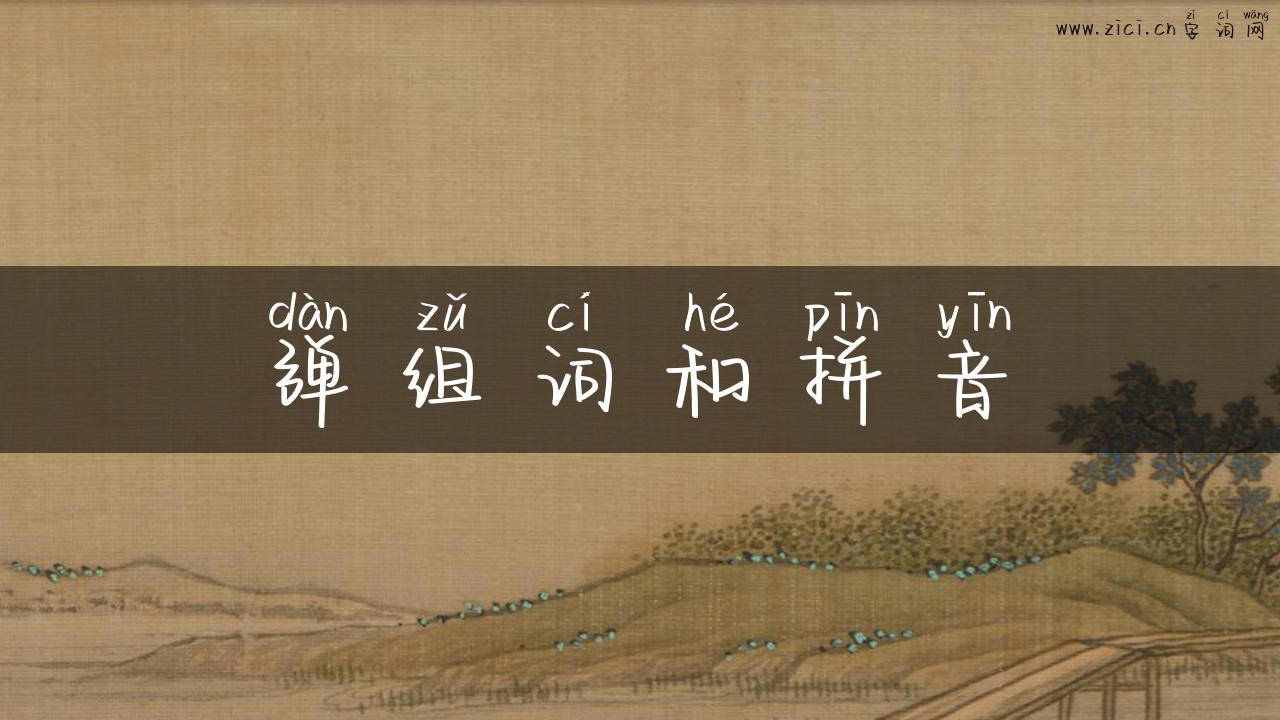 zì cí wǎng
www.zici.cn字词网
dàn zǔ cí hé pīn yīn
弹组词和拼音